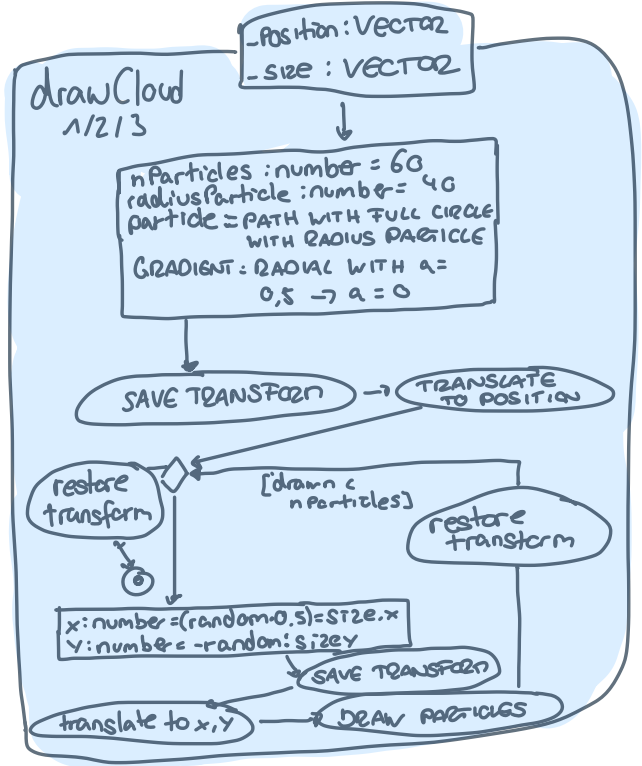 -Position: VECTOR
- SIZE : VECTOR
drawCloud
1/2/3
nParticles :number = 60
radiusParticle :number= 40
particle = PATH WITH FULL CIRCLE
WITH RADIUS PARTICLE
GRADIENT: RADIAL WITH a=
0,5 → a = 0
SAVE TRANSFORM
TRANSLATE
TO POSITION
restore
transform
[drawn <
nParticles]
restore
transform
x:number=(random-0.5)=size.x
y:number= -random:sizey
SAVE TRANSFORM
translate to x,y
DRAW PARTICLES